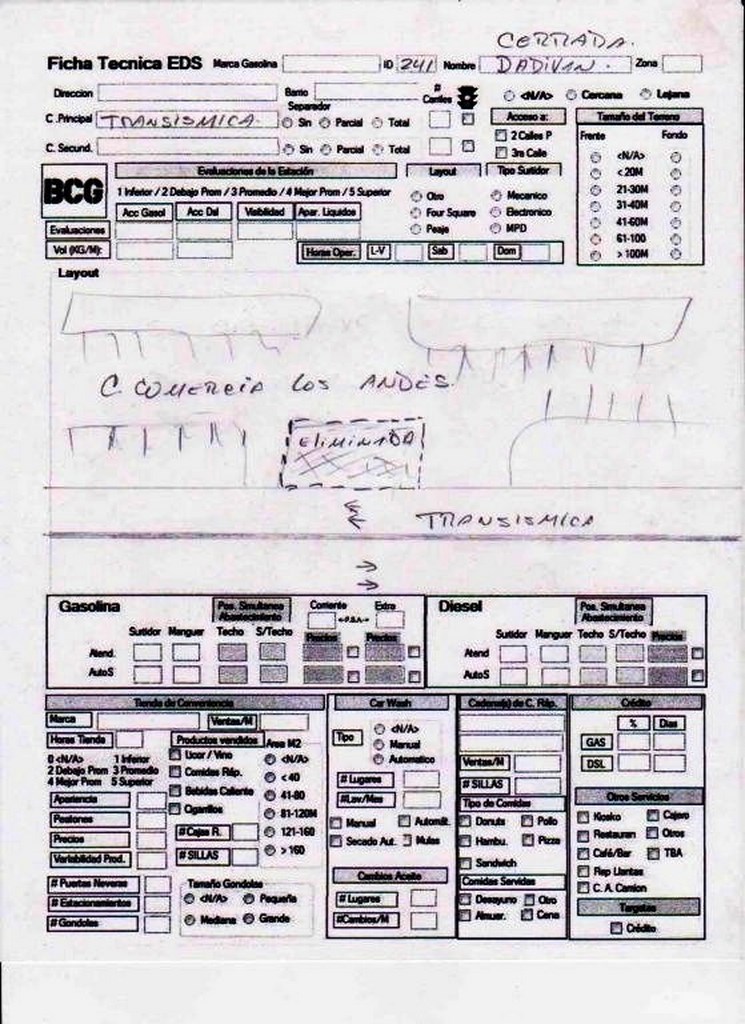 CERRADA.
Ficha Tecnica EDS Marca Gasolina ID 241 Nombre DADIVIN. Zona
Direccion Barrio # Carriles <N/A> Cercana Lejana
Separador
C .Principal TRANSISMICA. Sin Parcial Total Acceso a: Tamaño del Terreno
C. Secund. Sin Parcial Total 2 Calles P Frente Fondo
3ra Calle <N/A>
BCG Evaluaciones de la Estación Layout Tipo Surtidor < 20M
1 Inferior / 2 Debajo Prom / 3 Promedio / 4 Mejor Prom / 5 Superior Otro Mecanico 21-30M
Acc Gasol Acc Dsl Visibilidad Apar. Liquidos Four Square Electronico 31-40M
Evaluaciones Peaje MPD 41-60M
Vol (KG/M): Horas Oper. L-V Sab Dom 61-100
> 100M
Layout
C. COMERCIA LOS ANDES.
ELIMINADA
TRANSISMICA
Gasolina Pos. Simultaneo Abastecimiento Corriente Extra Diesel Pos. Simultaneo Abastecimiento
<-P.S.A.->
Surtidor Manguer Techo S/Techo Precios Precios Surtidor Manguer Techo S/Techo Precios
Atend. Atend
AutoS AutoS
Tienda de Conveniencia Car Wash Cadena(s) de C. Ráp. Crédito
Marca Ventas/M <N/A> % Dias
Horas Tienda Productos vendidos Area M2 Tipo Manual GAS
0 <N/A> 1 Inferior Licor / Vino <N/A> Automatico Ventas/M DSL
2 Debajo Prom 3 Promedio Comidas Ráp. < 40 # Lugares # SILLAS
4 Mejor Prom 5 Superior Bebidas Caliente 41-80 # Lav/Mes Tipo de Comidas Otros Servicios
Apariencia Cigarrillos 81-120M Manual Automát. Donuts Pollo Kiosko Cajero
Pestones # Cajas R. 121-160 Secado Aut. Mulas Hambu. Pizza Restauran Otros
Precios # SILLAS > 160 Sandwich Café/Bar TBA
Variabilidad Prod. Cambios Aceite Comidas Servidas Rep Llantas
# Puertas Neveras Tamaño Gondolas # Lugares Desayuno Otro C. A. Camion
# Estacionamientos <N/A> Pequeña # Cambios/M Almuer. Cena Targetas
# Gondolas Mediana Grande Crédito